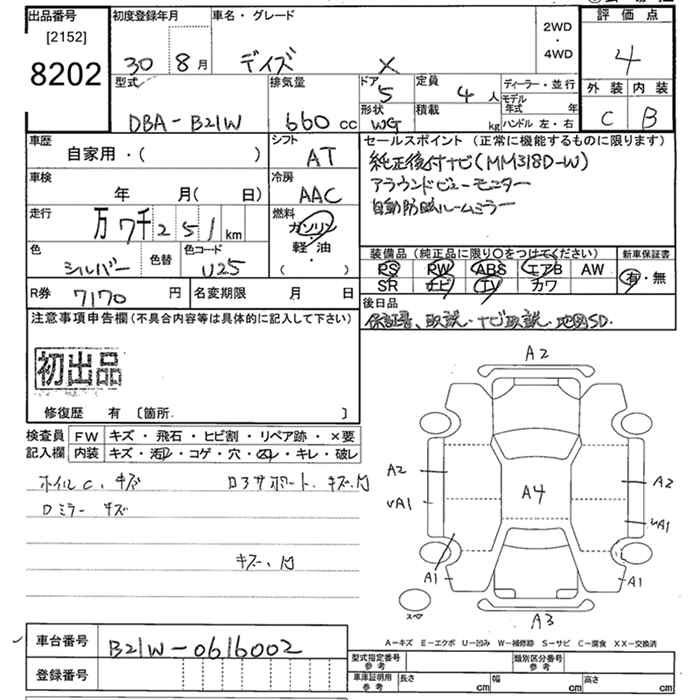 出品番号 初度登録年月 車名・グレード 評価点
[2152] 2WD
8202 30 8月 デイズ X ・ 4
4WD
型式 排気量 ドア 定員 ディーラー・並行 外装 内装
5 4人 モデル年式 年
DBA-B21W 660cc 形状 WG 積載 kg ハンドル 左・右 C B
車歴 シフト セールスポイント (正常に機能するものに限ります)
自家用・( ) AT 純正後付ナビ(MM318D-W)
車検 冷房 アラウンドビューモニター
年 月(日) AAC 自動防眩ルームミラー
走行 万7千251km 燃料 ガソリン
軽油
( )
装備品 (純正品に限り○をつけてください) 新車保証書
色 シルバー 色替 色コード U25 PS PW ABS エアB AW 有・無
SR ナビ TV カワ
R券 7170円 名変期限 月 日 後日品
注意事項申告欄(不具合内容等は具体的に記入して下さい) 保証書、取説、ナビ取説、地図SD.
初出品
修復歴 有 [箇所. ]
検査員 FW キズ・飛石・ヒビ割・リペア跡・×要
記入欄 内装 キズ・汚レ・コゲ・穴・凹・キレ・破レ
ホイルC、キズ ロアサポート、キズ、凹
Dミラー キズ
キズ、凹
A2
A2 A4 A2
υA1 υA1
A1 A1
スペア A3
A-キズ E-エクボ U-凹み W-補修跡 S-サビ C-腐食 XX-交換済
車台番号 B21W-0616002
登録番号
型式指定番号 参考 類別区分番号 参考
車庫証明用 参考 長さ cm 幅 cm 高さ cm